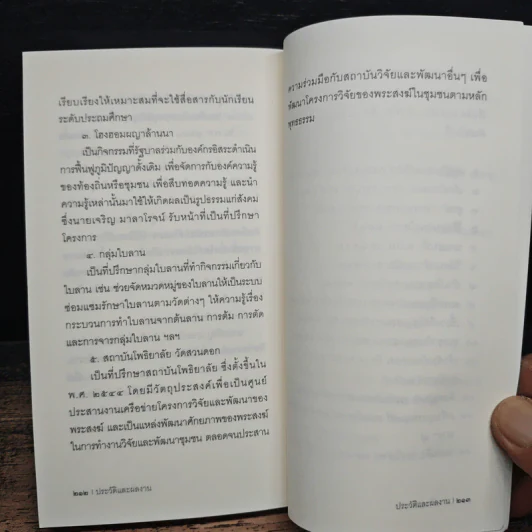 เรียบเรียงให้เหมาะสมที่จะใช้สื่อสารกับนักเรียน
ระดับประถมศึกษา
๓. โฮงฮอมผญาล้านนา
เป็นกิจกรรมที่รัฐบาลร่วมกับองค์กรอิสระดำเนิน
การฟื้นฟูภูมิปัญญาดั้งเดิม เพื่อจัดการกับองค์ความรู้
ของท้องถิ่นหรือชุมชน เพื่อสืบทอดความรู้ และนำ
ความรู้เหล่านั้นมาใช้ให้เกิดผลเป็นรูปธรรมแก่สังคม
ซึ่งนายเจริญ มาลาโรจน์ รับหน้าที่เป็นที่ปรึกษา
โครงการ
๔. กลุ่มใบลาน
เป็นที่ปรึกษากลุ่มใบลานที่ทำกิจกรรมเกี่ยวกับ
ใบลาน เช่น ช่วยจัดหมวดหมู่ของใบลานให้เป็นระบบ
ซ่อมแซมรักษาใบลานตามวัดต่างๆ ให้ความรู้เรื่อง
กระบวนการทำใบลานจากต้นลาน การต้ม การตัด
และการจารกลุ่มใบลาน ฯลฯ
๕. สถาบันโพธิยาลัย วัดสวนดอก
เป็นที่ปรึกษาสถาบันโพธิยาลัย ซึ่งตั้งขึ้นใน
พ.ศ. ๒๕๔๔ โดยมีวัตถุประสงค์เพื่อเป็นศูนย์
ประสานงานเครือข่ายโครงการวิจัยและพัฒนาของ
พระสงฆ์ และเป็นแหล่งพัฒนาศักยภาพของพระสงฆ์
ในการทำงานวิจัยและพัฒนาชุมชน ตลอดจนประสาน
๒๑๒ | ประวัติและผลงาน
ความร่วมมือกับสถาบันวิจัยและพัฒนาอื่นๆ เพื่อ
พัฒนาโครงการวิจัยของพระสงฆ์ในชุมชนตามหลัก
พุทธธรรม
ประวัติและผลงาน | ๒๑๓